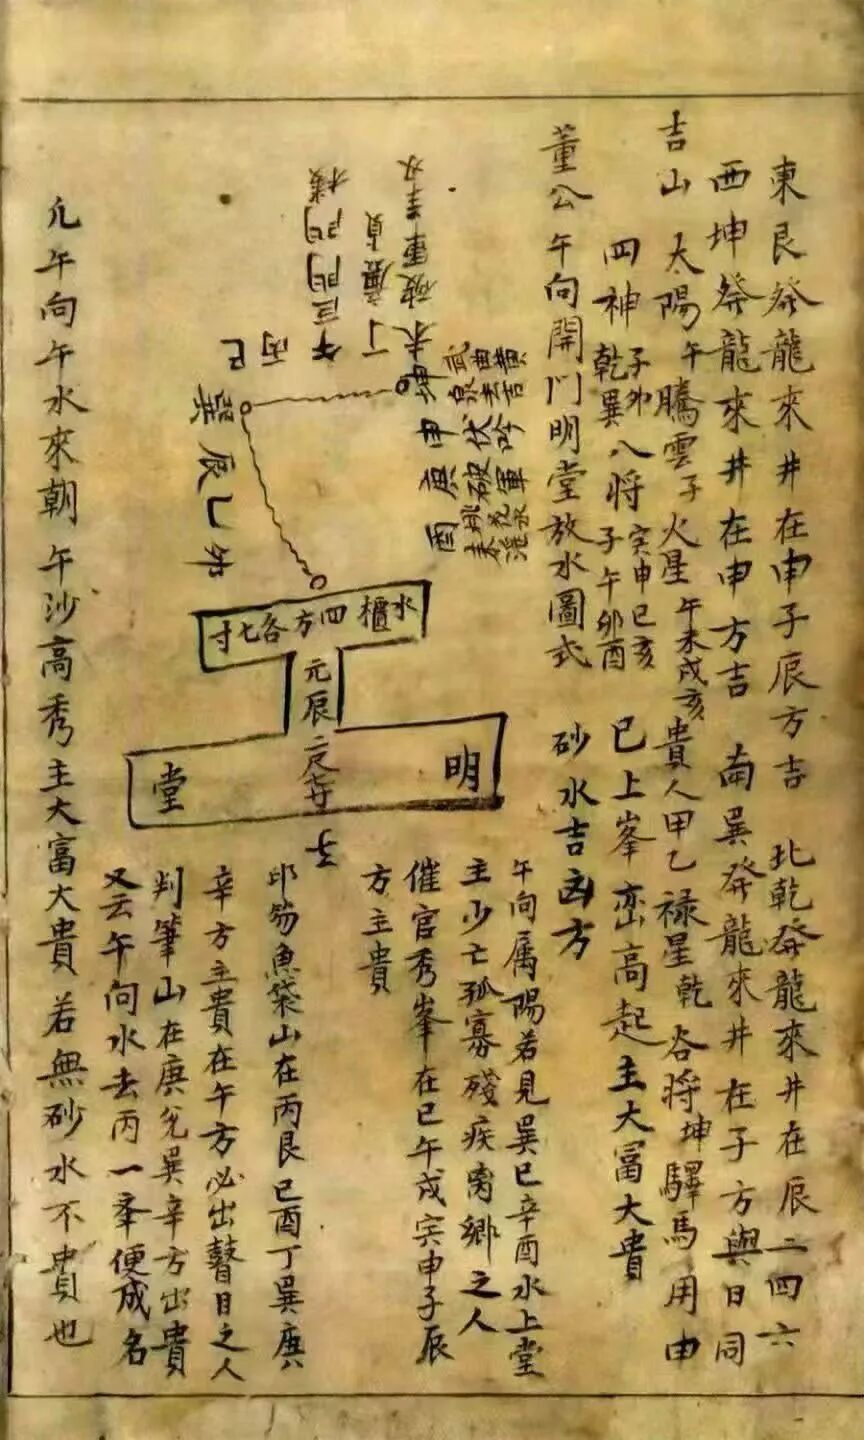 東艮發龍來井在申子辰方吉 北乾發龍來井在辰二四六
西坤發龍來井在申方吉 南巽發龍來井在子方與日同
吉山太陽午騰雲子火星午未戌亥貴人甲乙禄星乾谷將坤驛馬用申
四神乾巽子卯八將子午卯酉寅申巳亥巳上峯巒高起主大富大貴
董公午向開门明堂放水圖式 砂水吉凶方
午向属陽若見巽巳辛酉水上堂
主少亡孤寡殘疾离鄉之人
催官秀峯在巳午戌寅申子辰
方主貴
印笏魚袋山在丙艮巳酉丁巽庚
辛方主貴在午方必出瞽目之人
判筆山在庚兌巽辛方出貴
又云午向水去丙一峯便成名
凢午向午水來朝午沙高秀主大富大貴若無砂水不貴也
未破軍
丁廉貞
午
丙巳
巽
辰乙卯
坤武曲黄
申伏吟
庚破軍
酉
水櫃四方各七寸
元辰
子
明堂